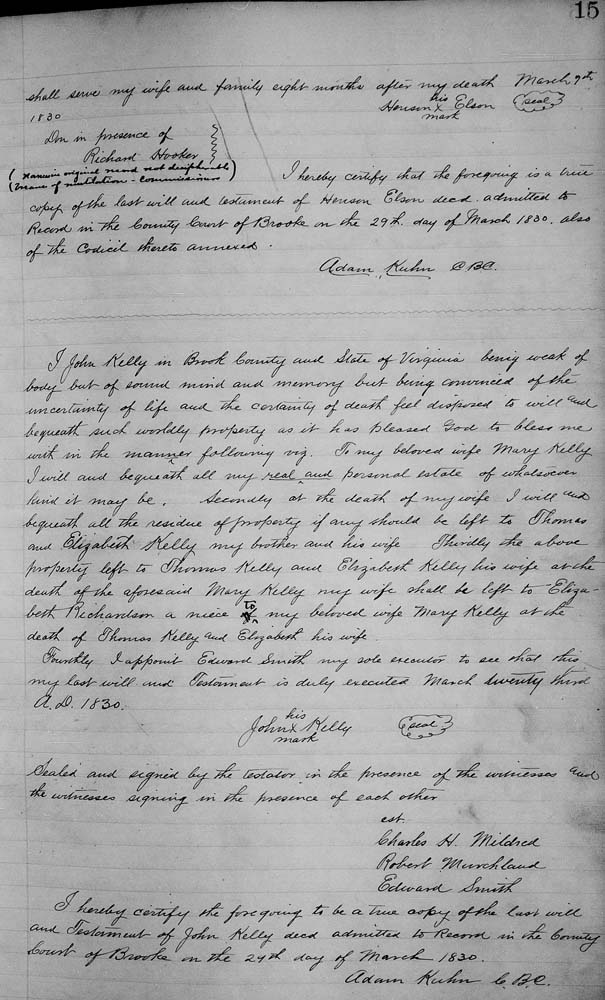 15
shall serve my wife and family eight months after my death March 9th
1830
his
Henson X Elson (seal)
mark
Don in presence of
Richard Hooker
( original record not decipherable )
( Means of restitution - Commissioner )
I hereby certify that the foregoing is a true
copy of the last will and testament of Henson Elson decd. admitted to
Record in the County Court of Brooke on the 29th. day of March 1830. also
of the Codicil thereto annexed.
Adam Kuhn C B C.
I John Kelly in Brook County and State of Virginia being weak of
body but of sound mind and memory but being convinced of the
uncertainty of life and the certainty of death feel disposed to will and
bequeath such worldly property as it has pleased God to bless me
with in the manner following viz. To my beloved wife Mary Kelly
I will and bequeath all my real and personal estate of whatsoever
kind it may be. Secondly at the death of my wife I will and
bequeath all the residue of property if any should be left to Thomas
and Elizabeth Kelly my brother and his wife Thirdly the above
property left to Thomas Kelly and Elizabeth Kelly his wife at the
death of the aforesaid Mary Kelly my wife shall be left to Eliza-
beth Richardson a niece to my beloved wife Mary Kelly at the
death of Thomas Kelly and Elizabeth his wife.
Fourthly I appoint Edward Smith my sole executor to see that this
my last will and Testament is duly executed March twenty third
A.D. 1830.
his
John X Kelly (seal)
mark
Sealed and signed by the testator in the presence of the witnesses and
the witnesses signing in the presence of each other
est.
Charles H. Mildred
Robert Murchland
Edward Smith
I hereby certify the foregoing to be a true copy of the last will
and Testament of John Kelly decd admitted to Record in the County
Court of Brooke on the 29th day of March 1830.
Adam Kuhn C. B. C.